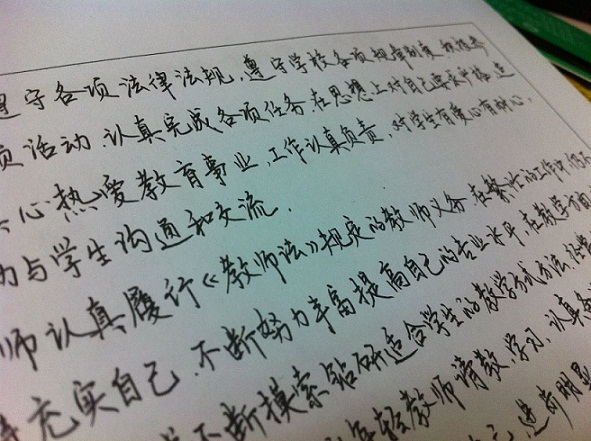 遵守各项法律法规,遵守学校各项规章制度,积极参
活动,认真完成各项任务,在思想上对自己要求严格,造
心热爱教育事业,工作认真负责,对学生有爱心有耐心,
与学生沟通和交流.
师认真履行《教师法》规定的教师义务,在繁忙的工作中
充实自己,不断努力丰富提高自己的专业水平,在教学方面
不断摸索钻研适合学生的教学方式方法,经常
年轻教师请教,学习,认真备
进步明显